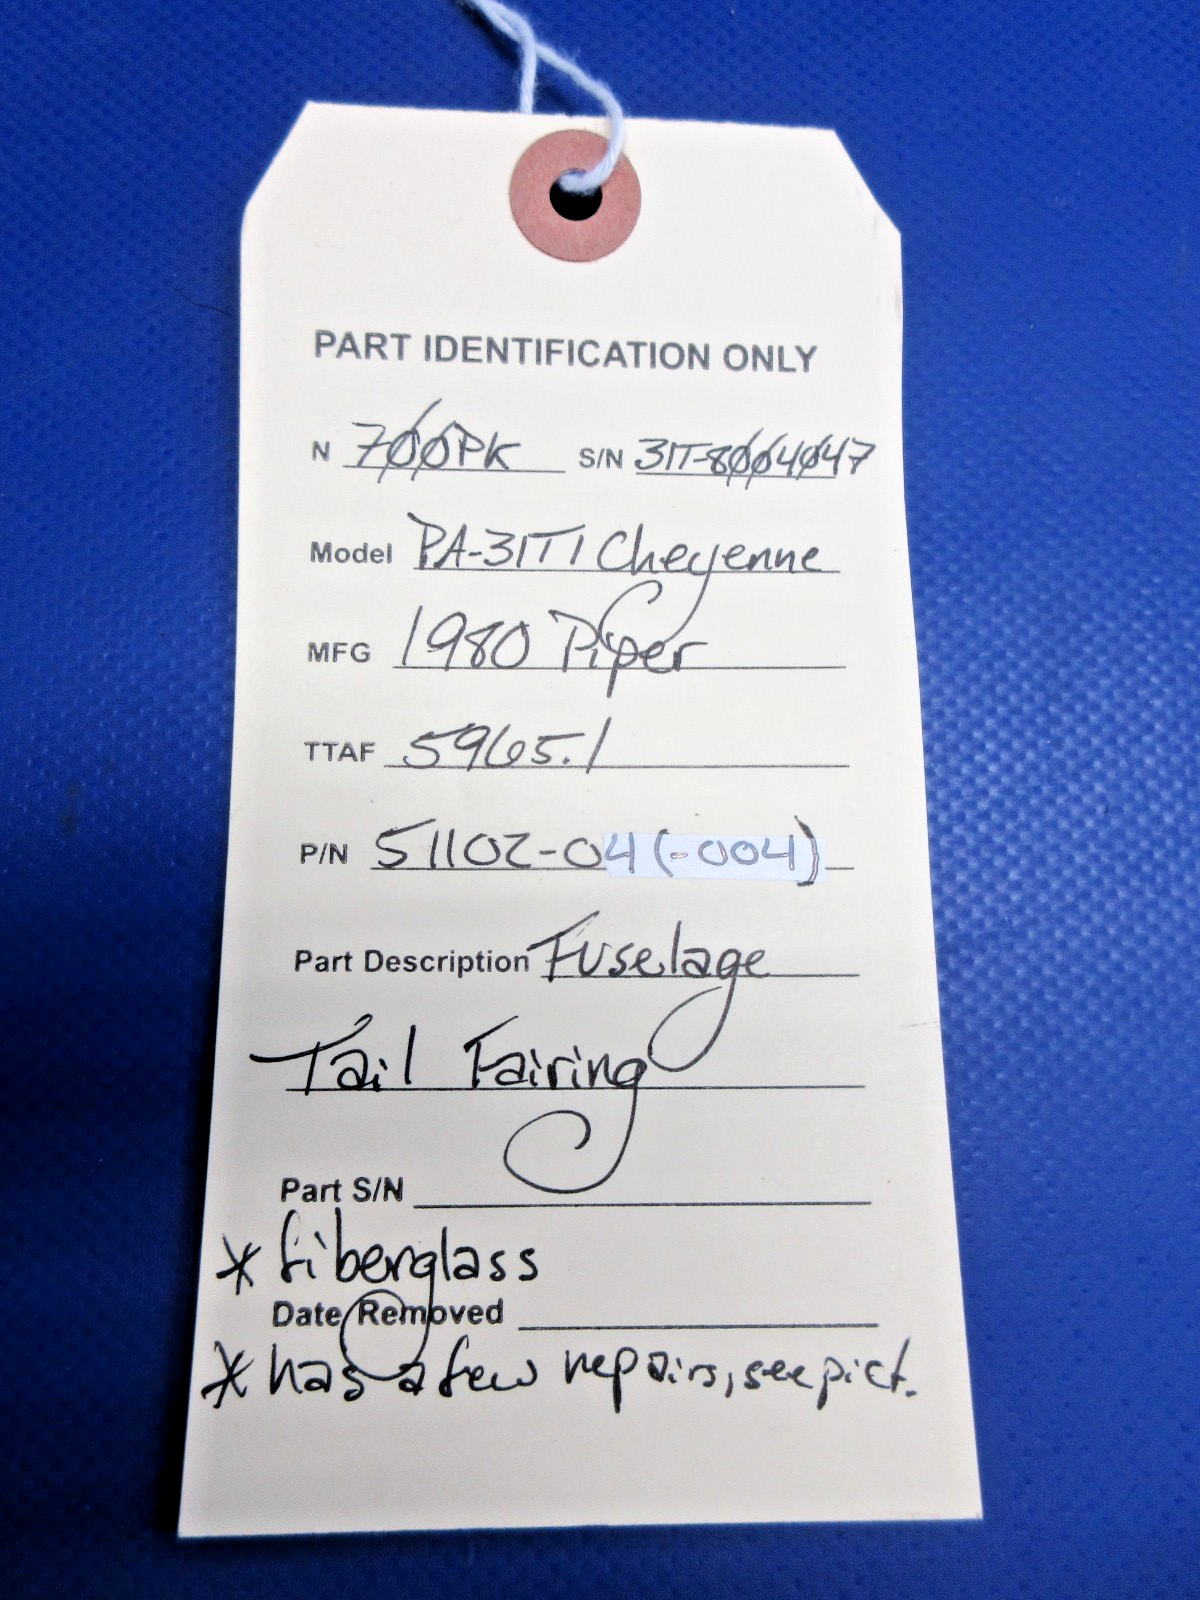 PART IDENTIFICATION ONLY
N 700PK S/N 31T-8004047
Model PA-31T1 Cheyenne
MFG 1980 Piper
TTAF 5965.1
P/N 51102-04 (-004)
Part Description Fuselage
Tail Fairing
Part S/N
* fiberglass
Date Removed
* has a few repairs, see pict.